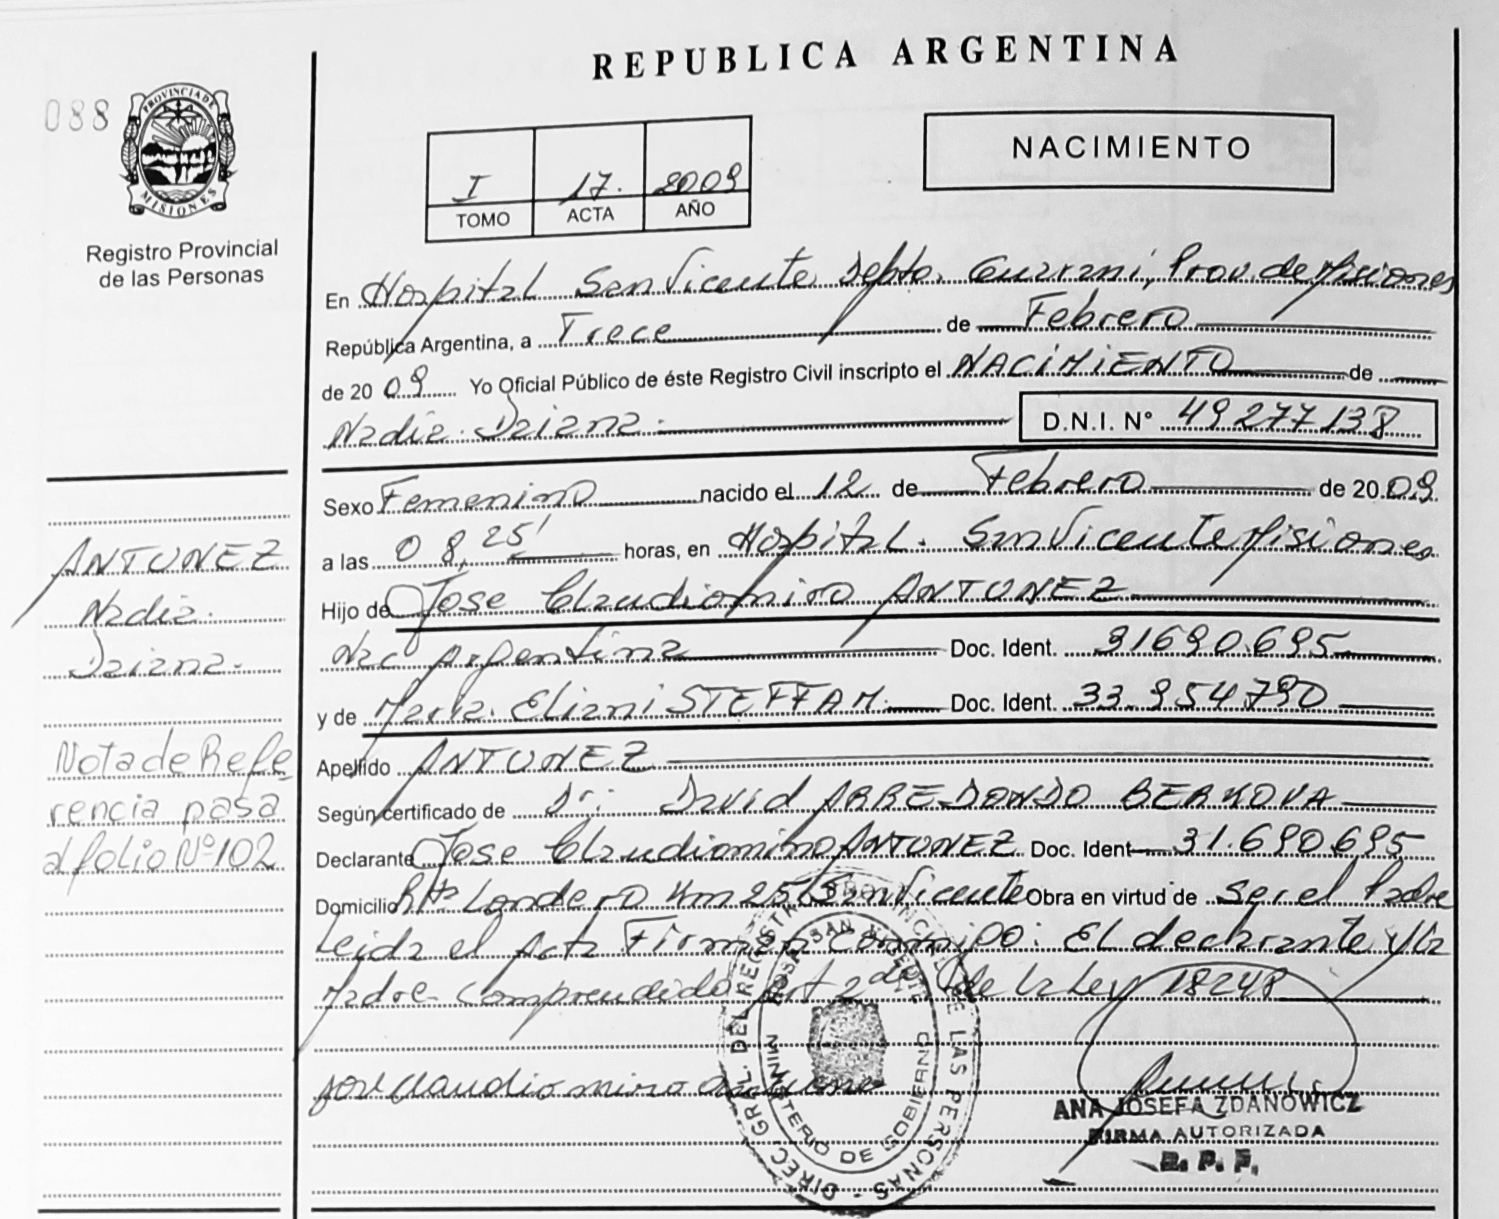 REPUBLICA ARGENTINA
088
PROVINCIA DE MISIONES
NACIMIENTO
I 17. 2009
TOMO ACTA AÑO
Registro Provincial
de las Personas
En Hospital San Vicente, Depto. Guarani, Prov. de Misiones
República Argentina, a Trece de Febrero
de 2009 Yo Oficial Público de éste Registro Civil inscripto el NACIMIENTO de
Nadia Daiana D.N.I. N° 49277138
Sexo Femenino nacido el 12 de Febrero de 2009
a las 08,25' horas, en Hospital. San Vicente Misiones
Hijo de Jose Claudiomiro ANTUNEZ
Nac Argentina Doc. Ident. 31690.695
y de Maria Eliani STEFFAM Doc. Ident. 33.954790
Apellido ANTUNEZ
Según certificado de Dr: David ARREDONDO BERNOVA
Declarante Jose Claudiomiro ANTUNEZ Doc. Ident 31.690695
Domicilio Londero Km 25 San Vicente Obra en virtud de Ser el Padre
Leida el Acta Firman conmigo: El declarante y la
Madre comprendido Art 2do de la Ley 18248
ANTUNEZ
Nadia
Daiana
Nota de Refe
rencia pasa
al folio Nº 102
jose claudiomiro
DIREC. GRAL. DEL REGISTRO PROVINCIAL DE LAS PERSONAS
SAN VICENTE
MINISTERIO DE GOBIERNO
ANA JOSEFA ZDANOWICZ
FIRMA AUTORIZADA